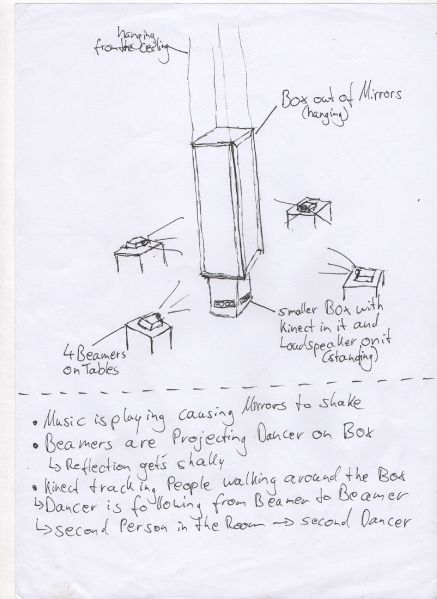 hanging
from the ceiling
Box out of Mirrors
(hanging)
smaller Box with
Kinect in it and
Loudspeaker on it
(standing)
4 Beamers
on Tables
• Music is playing causing Mirrors to shake
• Beamers are Projecting Dancer on Box
↳ Reflection gets shaky
• Kinect tracking People walking around the Box
↳ Dancer is following from Beamer to Beamer
↳ second Person in the Room → second Dancer